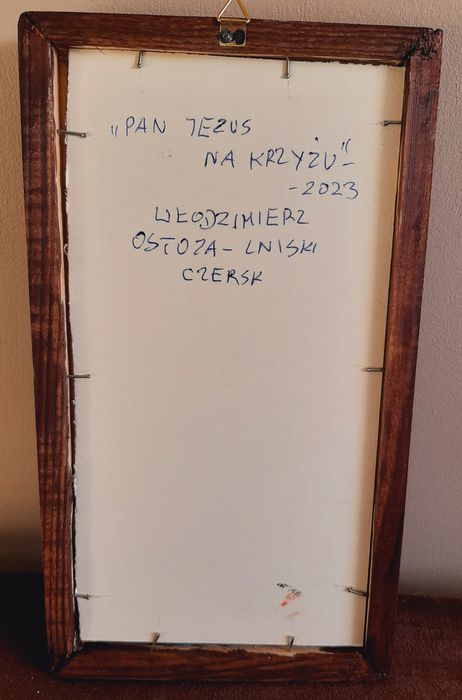 „PAN JEZUS
NA KRZYŻU”-
-2023
WŁODZIMIERZ
OSTOJA-LNISKI
CZERSK